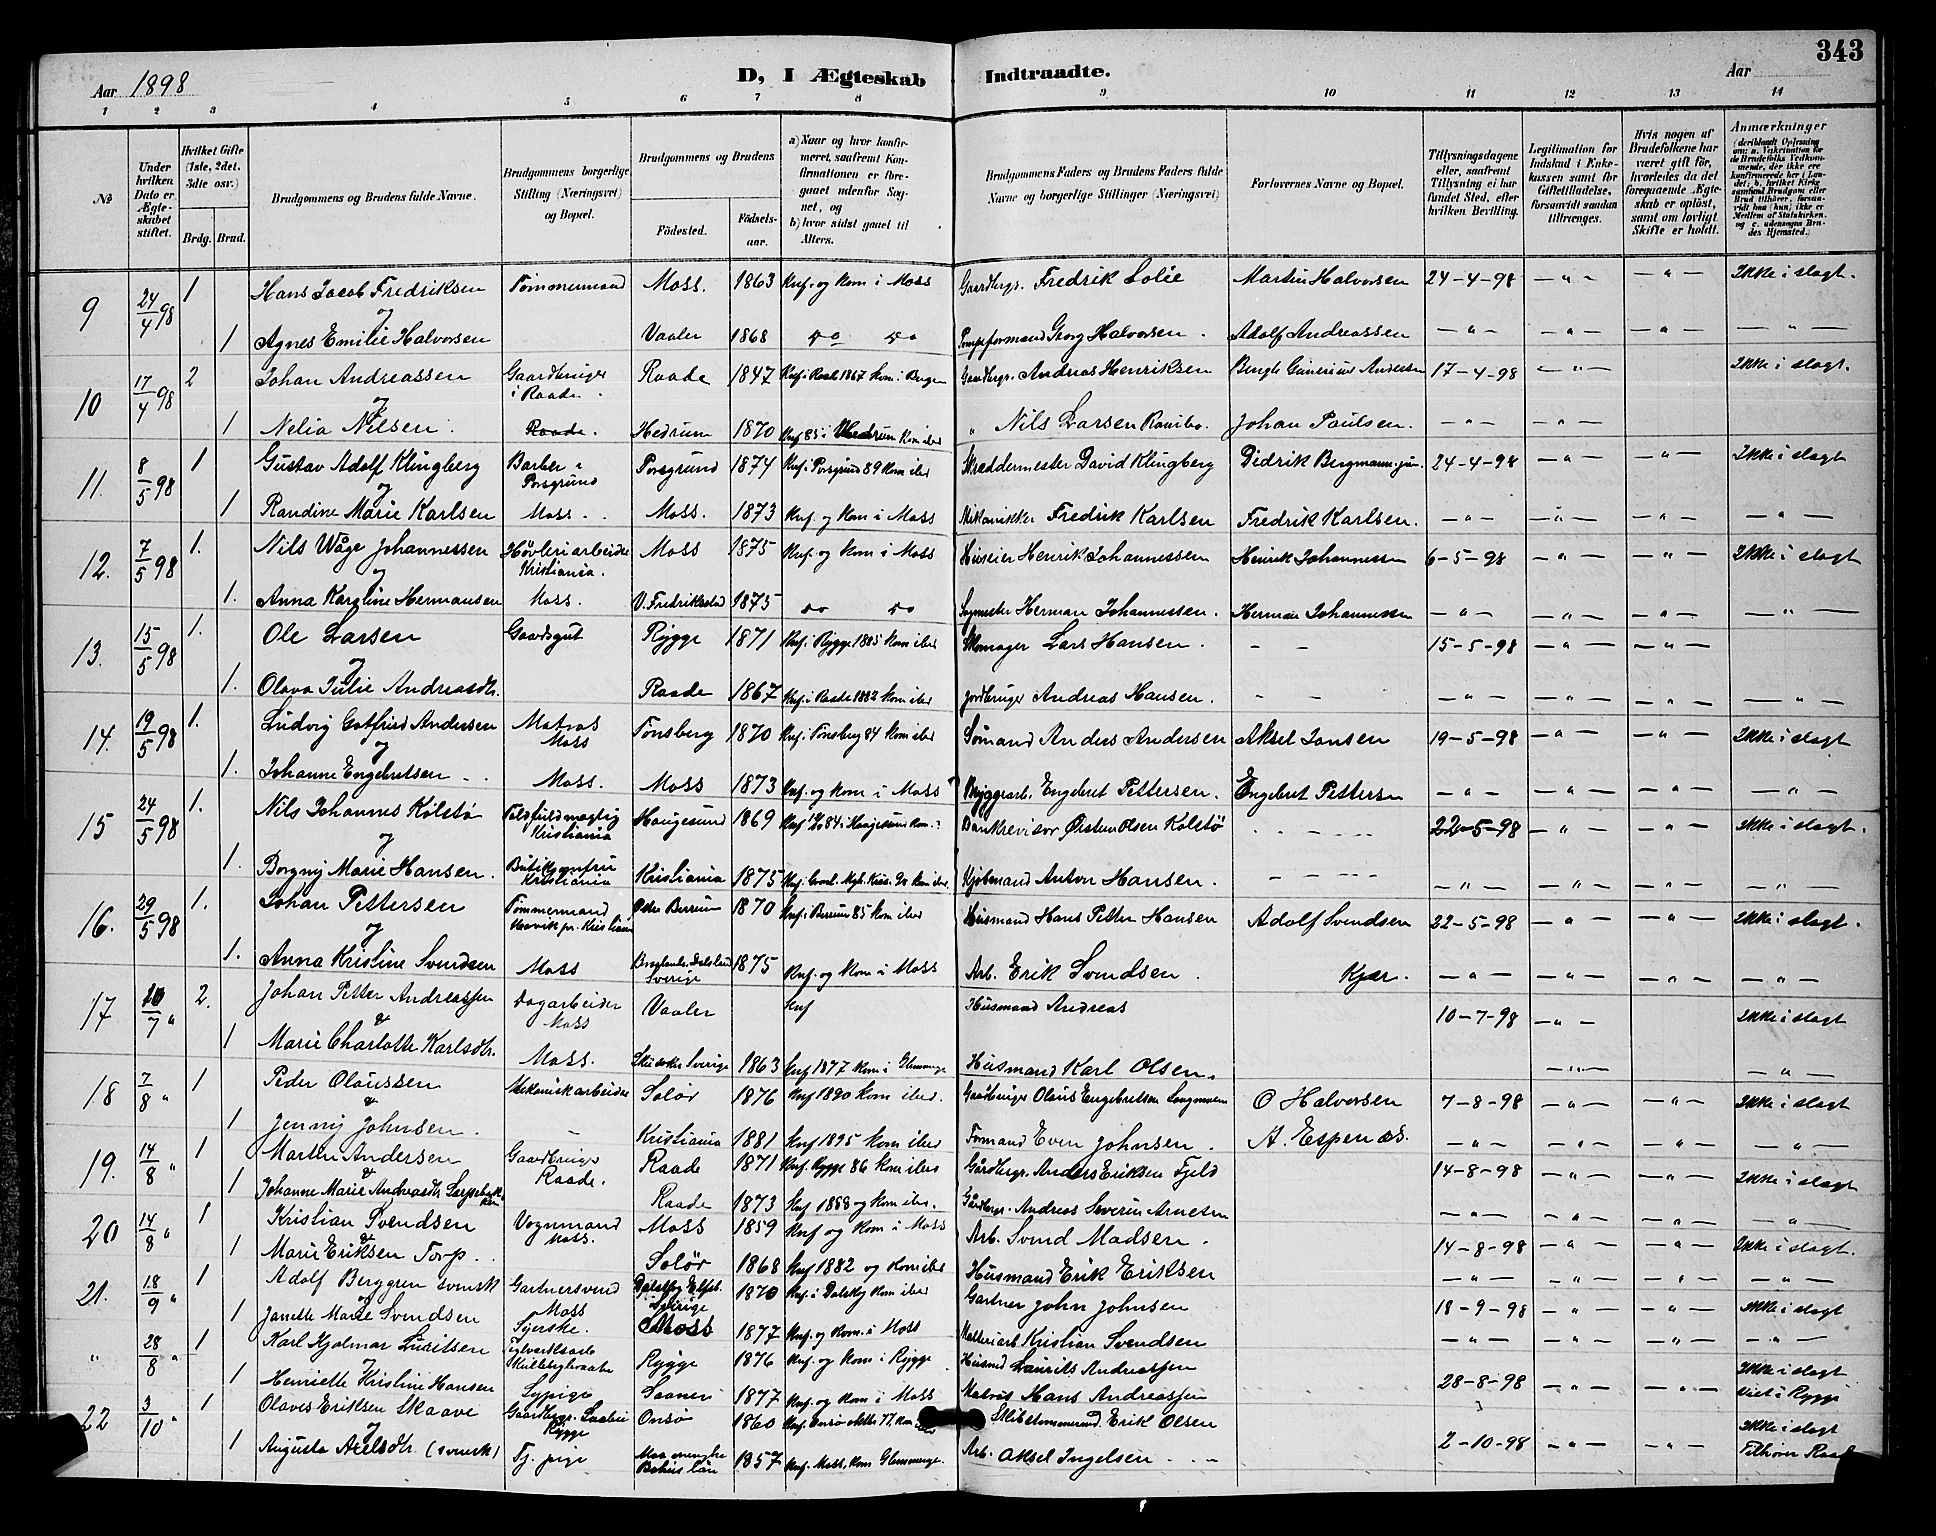 343
Aar 1898
D, I Ægteskab Indtraadte.
Aar
1 2 3 4 5 6 7 8 9 10 11 12 13 14
No
Under hvilken Dato er Ægteskabet stiftet.
Hvilket Gifte (1ste, 2det, 3die osv.)
Brdg. Brud.
Brudgommens og Brudens fulde Navne.
Brudgommens borgerlige Stilling (Næringsvei) og Bopæl.
Brudgommens og Brudens
Fødested. Fødselsaar.
a) Naar og hvor konfirmeret, saafremt Konfirmationen er foregaaet udenfor Sognet, og
b) hvor sidst gaaet til Alters.
Brudgommens Faders og Brudens Faders fulde Navne og borgerlige Stillinger (Næringsvei)
Forlovernes Navne og Bopæl.
Tillysningsdagene eller, saafremt Tillysning ei har fundet Sted, efter hvilken Bevilling.
Legitimation for Indskud i Enkekassen samt for Giftetilladelse, forsaavidt saadan tiltrænges.
Hvis nogen af Brudefolkene har været gift før, hvorledes da det foregaaende Ægteskab er opløst, samt om lovligt Skifte er holdt.
Anmærkninger
9 24/4 98 1 Hans Jacob Fredriksen Tømmermand Moss. 1863 Knf. og kom i Moss Gaardbrgr. Fredrik Lolie Martin Halvorsen 24-4-98 — " — — " — Ikke i slægt.
og
1 Agnes Emilie Halvorsen Vaaler 1868 do do formand Georg Halvorsen. Adolf Andreassen — " — — " — — " — — " —
10 17/4 98 2 Johan Andreassen Gaardbruger i Raade. Raade 1847 Knf. i Raade 1867 kom i Gaardbrgr. Andreas Henriksen Andersen 17-4-98 — " — Ikke i slægt.
og
1 Nelia Nilsen. Raade. Hedrum 1870 Knf 85 i Hedrum kom ibid " Nils Larsen Johan Paulsen. — " — — " —
11. 8/5 98 1 Gustav Adolf Klingberg Barber i Porsgrund Porsgrund 1874 Knf. i Porsgrund 89 kom ibid Skræddermester David Klingberg Didrik Bergmann jun. 24-4-98 — " — — " — Ikke i slægt
og
1 Randine Marie Karlsen Moss. Moss. 1873 Knf og kom i Moss Mekanikker Fredrik Karlsen Fredrik Karlsen. — " — — " — — " — — " —
12. 7/5 98 1. Nils Wåge Johannessen Høvleriarbeider Kristiania. Moss 1875 Knf. og kom i Moss Huseier Henrik Johannessen Henrik Johannessen 6-5-98 — " — — " — Ikke i slægt
og
1. Anna Karoline Hermansen Moss. V. Fredrikstad 1875 do do Herman Johannessen. Herman Johannessen — " — — " — — " — — " —
13. 15/5 98 1. Ole Larsen Gaardsgut Rygge 1871 Knf. i Rygge 1885 kom ibid Skomager Lars Hansen. - - 15-5-98 — " — — " —
og
1. Olava Julie Andreasdtr. Raade 1867 Knf. i Raade 1882 kom ibid Jordbruger Andreas Hansen. - - — " — — " — — " — — " —
14. 19/5 98 1. Ludvig Gotfried Andersen Matros Moss Tønsberg 1870 Knf. i Tønsberg 84 kom ibid Sømand Anders Andersen Aksel Jansen 19-5-98 — " — — " — Ikke i slægt
og
1. Johanne Engebretsen Moss. Moss 1873 Knf. og kom i Moss Bryggearb. Engebret Pettersen. Engebret Pettersen — " — — " — — " — — " —
15 24/5 98 1. Nils Johannes Kolstø Kristiania Haugesund 1869 Knf 84 i Haugesund kom Bankrevisor Østen Olsen Kolstø - - - 22-5-98 — " — — " — Ikke i slægt.
og
1. Borgny Marie Hansen. Butikjomfru Kristiania Kristiania 1875 Kjøbmand Anton Hansen. - - - — " — — " — — " — — " —
16. 29/5 98 1. Johan Pettersen Tømmermand Høvik pr. Kristiania Østre Bærum 1870 Knf. i Bærum 85 kom ibid Husmand Hans Petter Hansen Adolf Svendsen 22-5-98 — " — — " — Ikke i slægt.
og
1. Anna Kristine Svendsen Moss Sverige 1875 Knf. og kom i Moss Arb. Erik Svendsen. Kjær. — " — — " — — " — — " —
17 10/7 " 2. Johan Petter Andreassen Dagarbeider Moss Vaaler Knf Husmand Andreas 10-7-98 — " — Ikke i slægt
&
1 Marie Charlotte Karlsdtr. Moss. Sverige 1863 Knf 1877 kom i Glemminge Husmand Karl Olsen. — " — — " —
18 7/8 " 1 Peder Olaussen Mekanikarbeider Solør 1876 Knf 1890 kom ibid. Gaardbruger Olaus Engebretsen O Halvorsen 7-8-98 — " — — " — Ikke i slægt
&
1 Jenny Johnsen. - Kristiania 1881 Knf 1895 kom ibid Formand Even Johnsen. A. Espenæs. — " — — " — — " — — " —
19. 14/8 " 1 Martin Andersen Gaardbruger Raade. Raade 1871 Knf. Rygge 86 kom ibid Gårdbrgr. Anders Eriksen Fjeld 14-8-98 — " — — " — Ikke i slægt
&
1 Johanne Marie Andreasdtr Raade 1873 Knf 1888 og kom ibid. Gårdbrgr. Andreas Severin Arnesen — " — — " — — " — — " —
20 14/8 " 1 Kristian Svendsen Vognmand Moss. Moss 1859 Knf og kom i Moss Arb. Svend Madsen. 14-8-98 — " — — " — Ikke i slægt.
&
1 Marie Eriksen Torp. Solør 1868 Knf 1882 og kom ibid Husmand Erik Eriksen — " — — " — — " — — " —
21. 18/9 " 1 Adolf Berggren svensk Gartnersvend Moss Dalsby Sverige 1870 Knf. i Dalsby kom ibid Gartner John Johnsen 18-9-98 — " — — " — Ikke i slægt
og
1 Janette Marie Svendsen Syerske. Moss 1877 Knf. og kom. i Moss Kristian Svendsen — " — — " — — " — — " —
" 28/8 " 1 Karl Hjalmar Lauritsen Rygge 1876 Knf. og kom i Rygge Husmd Laurits Andreassen 28-8-98 — " — — " — Ikke i slægt Viet i Rygge
1 Henriette Kristine Hansen Sypige Saaner 1877 Knf. og kom i Moss Matros Hans Andreassen
22 3/10 " 1 Olaves Eriksen Skaave Gaardbrgr. Rygge Onsø 1860 Knf. Onsø 77. kom ibid Skibstømmermd. Erik Olsen 2-10-98 — " — — " — Ikke i slægt Tilhører Raade
og
1 Augusta Axelsdtr. (svensk) Tj. pige 1857 Knf. Moss, kom Glemminge. Arb. Aksel Ingelsen